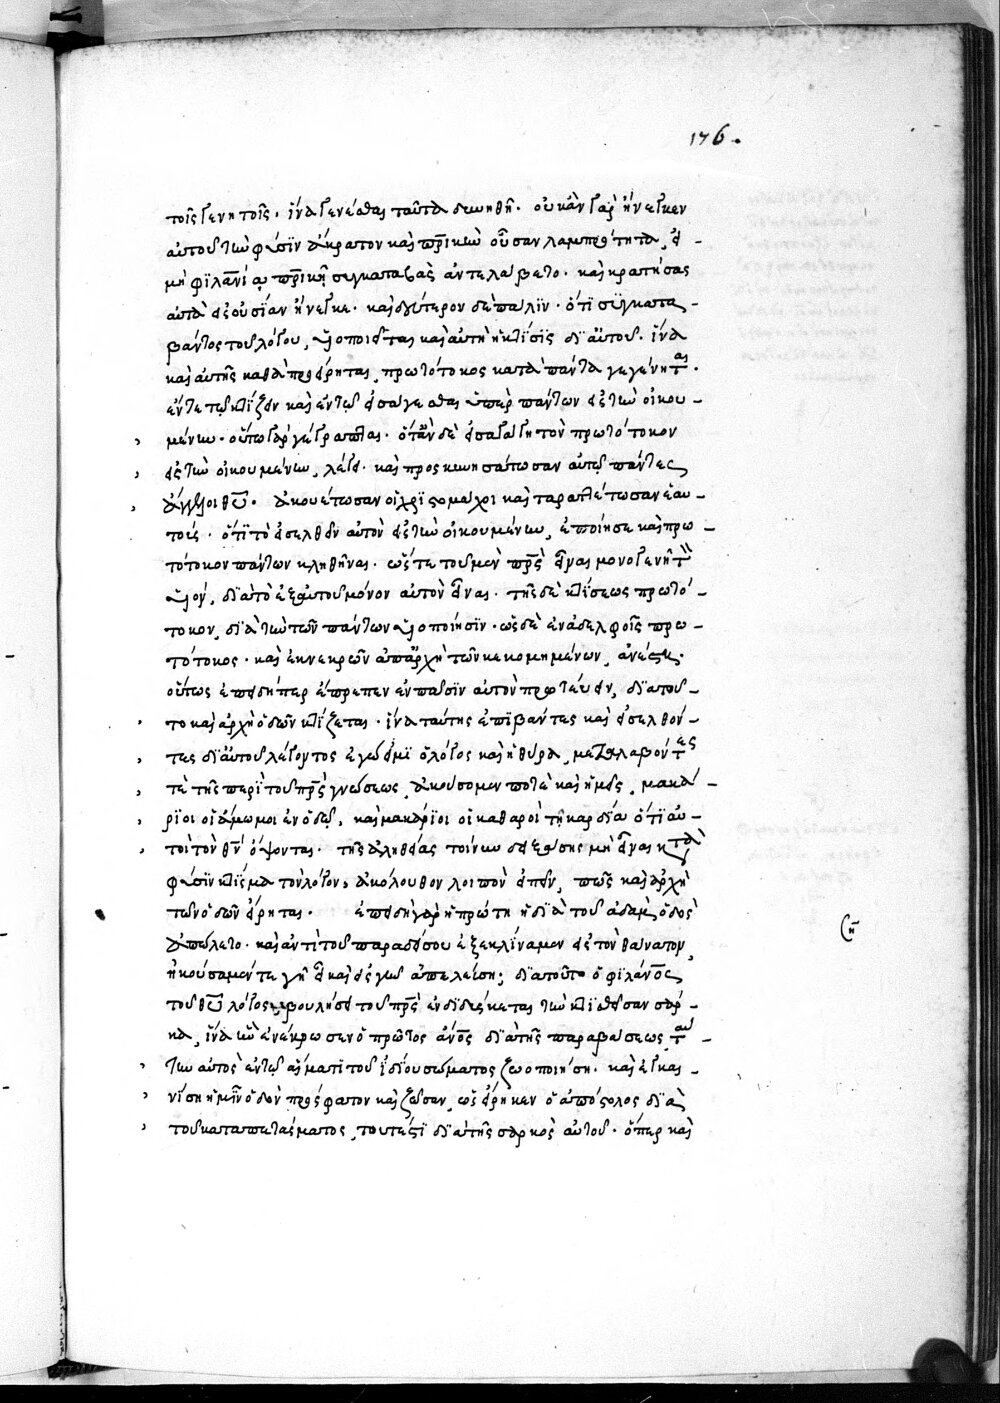 176.
τοῖς γενητοῖς. ἵνα γενέσθαι ταῦτα δυνηθῇ. οὐκ ἂν γὰρ ἤνεγκεν
αὐτοῦ τὴν φύσιν ἄκρατον καὶ πρικὴν οὖσαν λαμπρότητα, εἰ
μὴ φιλανίᾳ πρικῇ συγκαταβὰς ἀντελάβετο. καὶ κρατήσας
αὐτὰ εἰς οὐσίαν ἤνεγκε. καὶ δεύτερον δὲ πάλιν. ὅτι συγκατα-
βάντος τοῦ λόγου, υἱοποιεῖται καὶ αὐτὴ ἡ κτίσις δι' αὐτοῦ. ἵνα
καὶ αὐτῆς καθὰ προείρηται, πρωτότοκος κατὰ πάντα γεγένηται.
ἔν τε τῷ κτίζειν καὶ ἐν τῷ εἰσάγεσθαι ὑπὲρ πάντων εἰς τὴν οἰκου-
μένην. οὕτω γὰρ γέγραπται. ὅταν δὲ εἰσαγάγῃ τὸν πρωτότοκον
εἰς τὴν οἰκουμένην, λέγει. καὶ προσκυνησάτωσαν αὐτῷ πάντες
ἄγγελοι θυ. ἀκουέτωσαν οἱ χριστομάχοι καὶ σπαραττέτωσαν ἑαυ-
τούς. ὅτι τὸ εἰσελθεῖν αὐτὸν εἰς τὴν οἰκουμένην, ἐποίησε καὶ πρω
τότοκον πάντων κληθῆναι. ὥστε τοῦ μὲν πρς εἶναι μονογενῆ τὸν
υἱόν, διὰ τὸ ἐξ αὐτοῦ μόνον αὐτὸν εἶναι. τῆς δὲ κτίσεως πρωτό-
τοκον, διὰ τὴν τῶν πάντων υἱοποίησιν. ὡς δὲ ἐν ἀδελφοῖς πρω-
τότοκος. καὶ ἐκ νεκρῶν ἀπαρχὴ τῶν κεκοιμημένων, ἀνέστη.
οὕτως ἐπειδήπερ ἔπρεπεν ἐν πᾶσιν αὐτὸν πρωτεύειν, διὰ τοῦ-
το καὶ ἀρχὴ ὁδῶν κτίζεται. ἵνα ταύτης ἐπιβάντες καὶ εἰσελθόν-
τες δι' αὐτοῦ λέγοντος ἐγώ εἰμι ὁ λόγος καὶ ἡ θύρα, μεταλαβόντες
τὲ τῆς περὶ τοῦ πρς γνώσεως, ἀκούσομεν ποτὲ καὶ ἡμεῖς, μακά-
ριοι οἱ ἄμωμοι ἐν ὁδῷ, καὶ μακάριοι οἱ καθαροὶ τῇ καρδίᾳ ὅτι αὐ-
τοὶ τὸν θν ὄψονται. τῆς ἀληθείας τοίνυν δειξάσης μὴ εἶναι κατὰ
φύσιν κτίσμα τὸν λόγον, ἀκόλουθον λοιπὸν εἰπεῖν, πῶς καὶ ἀρχὴ
τῶν ὁδῶν εἴρηται. ἐπειδὴ γὰρ ἡ πρώτη ἡ διὰ τοῦ ἀδὰμ ὁδὸς
ἀπώλετο. καὶ ἀντὶ τοῦ παραδείσου ἐξεκλίναμεν εἰς τὸν θάνατον,
ἠκούσαμέν τε γῆ εἶ καὶ εἰς γῆν ἀπελεύσῃ; διὰ τοῦτο ὁ φιλάνος
τοῦ θυ λόγος, βουλήσει τοῦ πρς ἐνδιδύσκεται τὴν κτισθεῖσαν σάρ-
κα, ἵνα ἣν ἐνέκρωσεν ὁ πρῶτος ἄνος διὰ τῆς παραβάσεως ταύ-
την αὐτὸς ἐν τῷ αἵματι τοῦ ἰδίου σώματος ζωοποιήσῃ. καὶ ἐγκαι-
νίσῃ ἡμῖν ὁδὸν πρόσφατον καὶ ζῶσαν, ὡς εἴρηκεν ὁ ἀπόστολος διὰ
τοῦ καταπετάσματος, τουτέστι διὰ τῆς σαρκὸς αὐτοῦ. ὅπερ καὶ